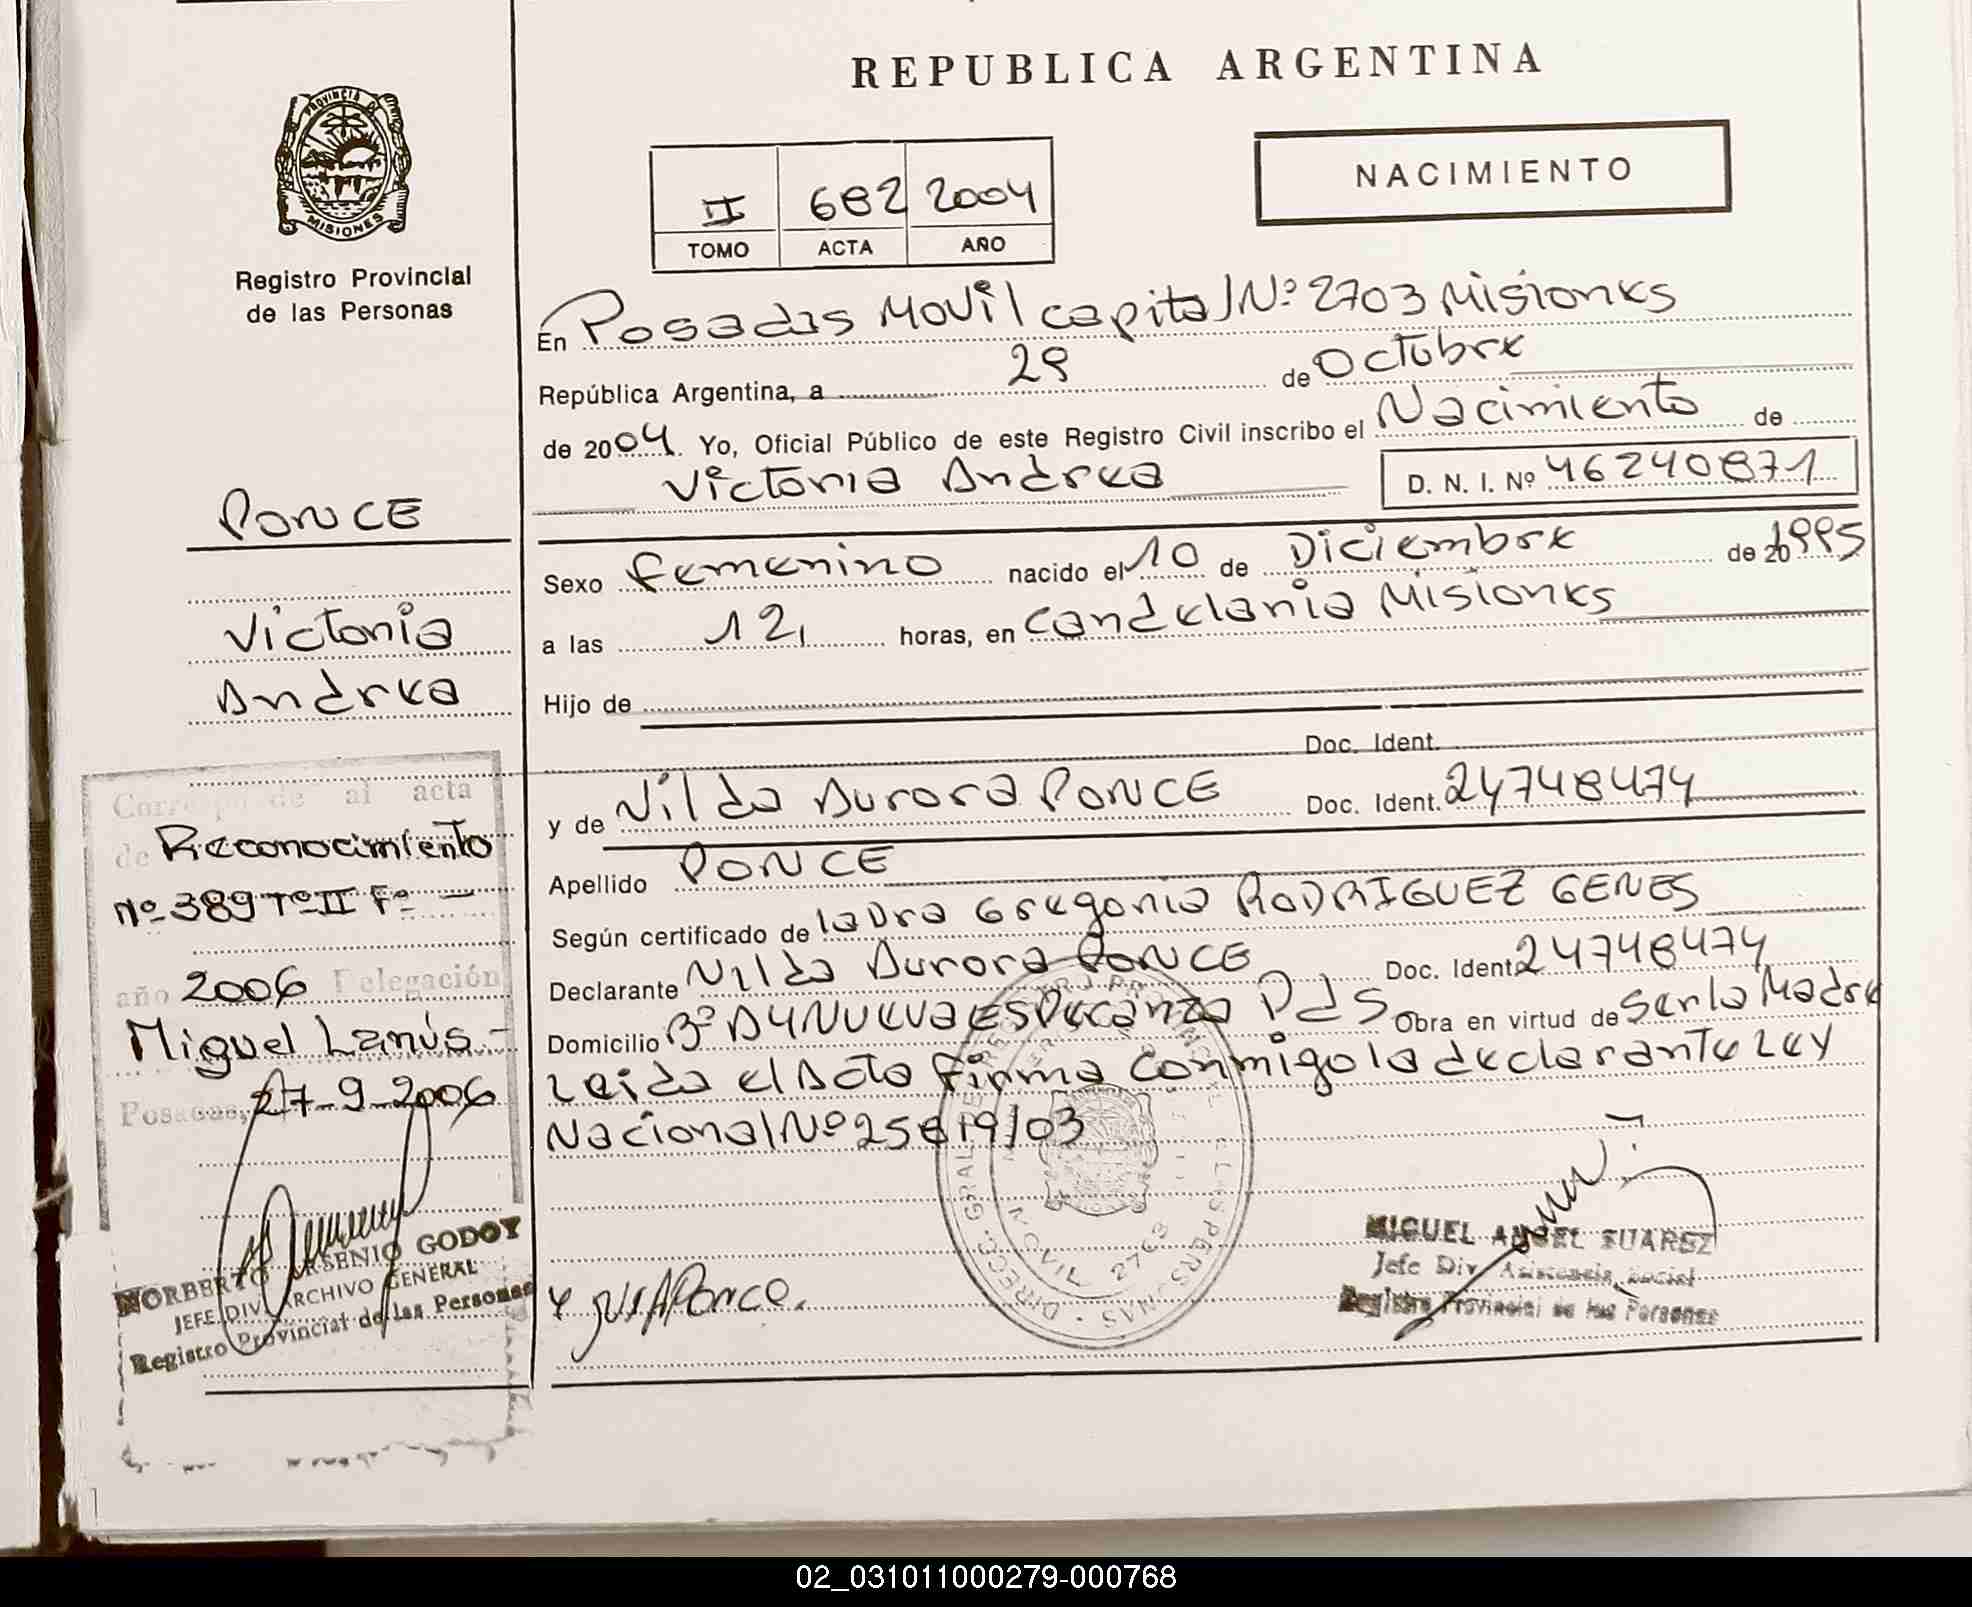 REPUBLICA ARGENTINA
PROVINCIA DE
MISIONES
Registro Provincial
de las Personas
II 682 2004
TOMO ACTA AÑO
NACIMIENTO
En Posadas Movil capital Nº 2703 Misiones
República Argentina, a 29 de Octubre
de 2004. Yo, Oficial Público de este Registro Civil inscribo el Nacimiento de
Victoria Andrea
D. N. I. Nº 46240871
Sexo femenino nacido el 10 de Diciembre de 20 1995
a las 12, horas, en Candelaria Misiones
Hijo de
Doc. Ident.
y de Nilda Aurora PONCE Doc. Ident. 24748474
Apellido PONCE
Según certificado de la Dra Gregoria RODRIGUEZ GENES
Declarante Nilda Aurora PONCE Doc. Ident. 24748474
Domicilio Bº A4 Nueva Esperanza Pds. Obra en virtud de Ser la Madre
Leida el Acta firma conmigo la declarante Ley
Nacional Nº 25819/03
PONCE
Victoria
Andrea
Corresponde al acta
de Reconocimiento
nº 389 Tº II Fº —
año 2006 Delegación
Miguel Lanús -
Posadas, 27-9-2006
NORBERTO ARSENIO GODOY
JEFE DIV. ARCHIVO GENERAL
Registro Provincial de las Personas
Ponce.
MOVIL 2703
MIGUEL ANGEL SUAREZ
Jefe Div. Asistencia Social
Registro Provincial de las Personas
02_031011000279-000768